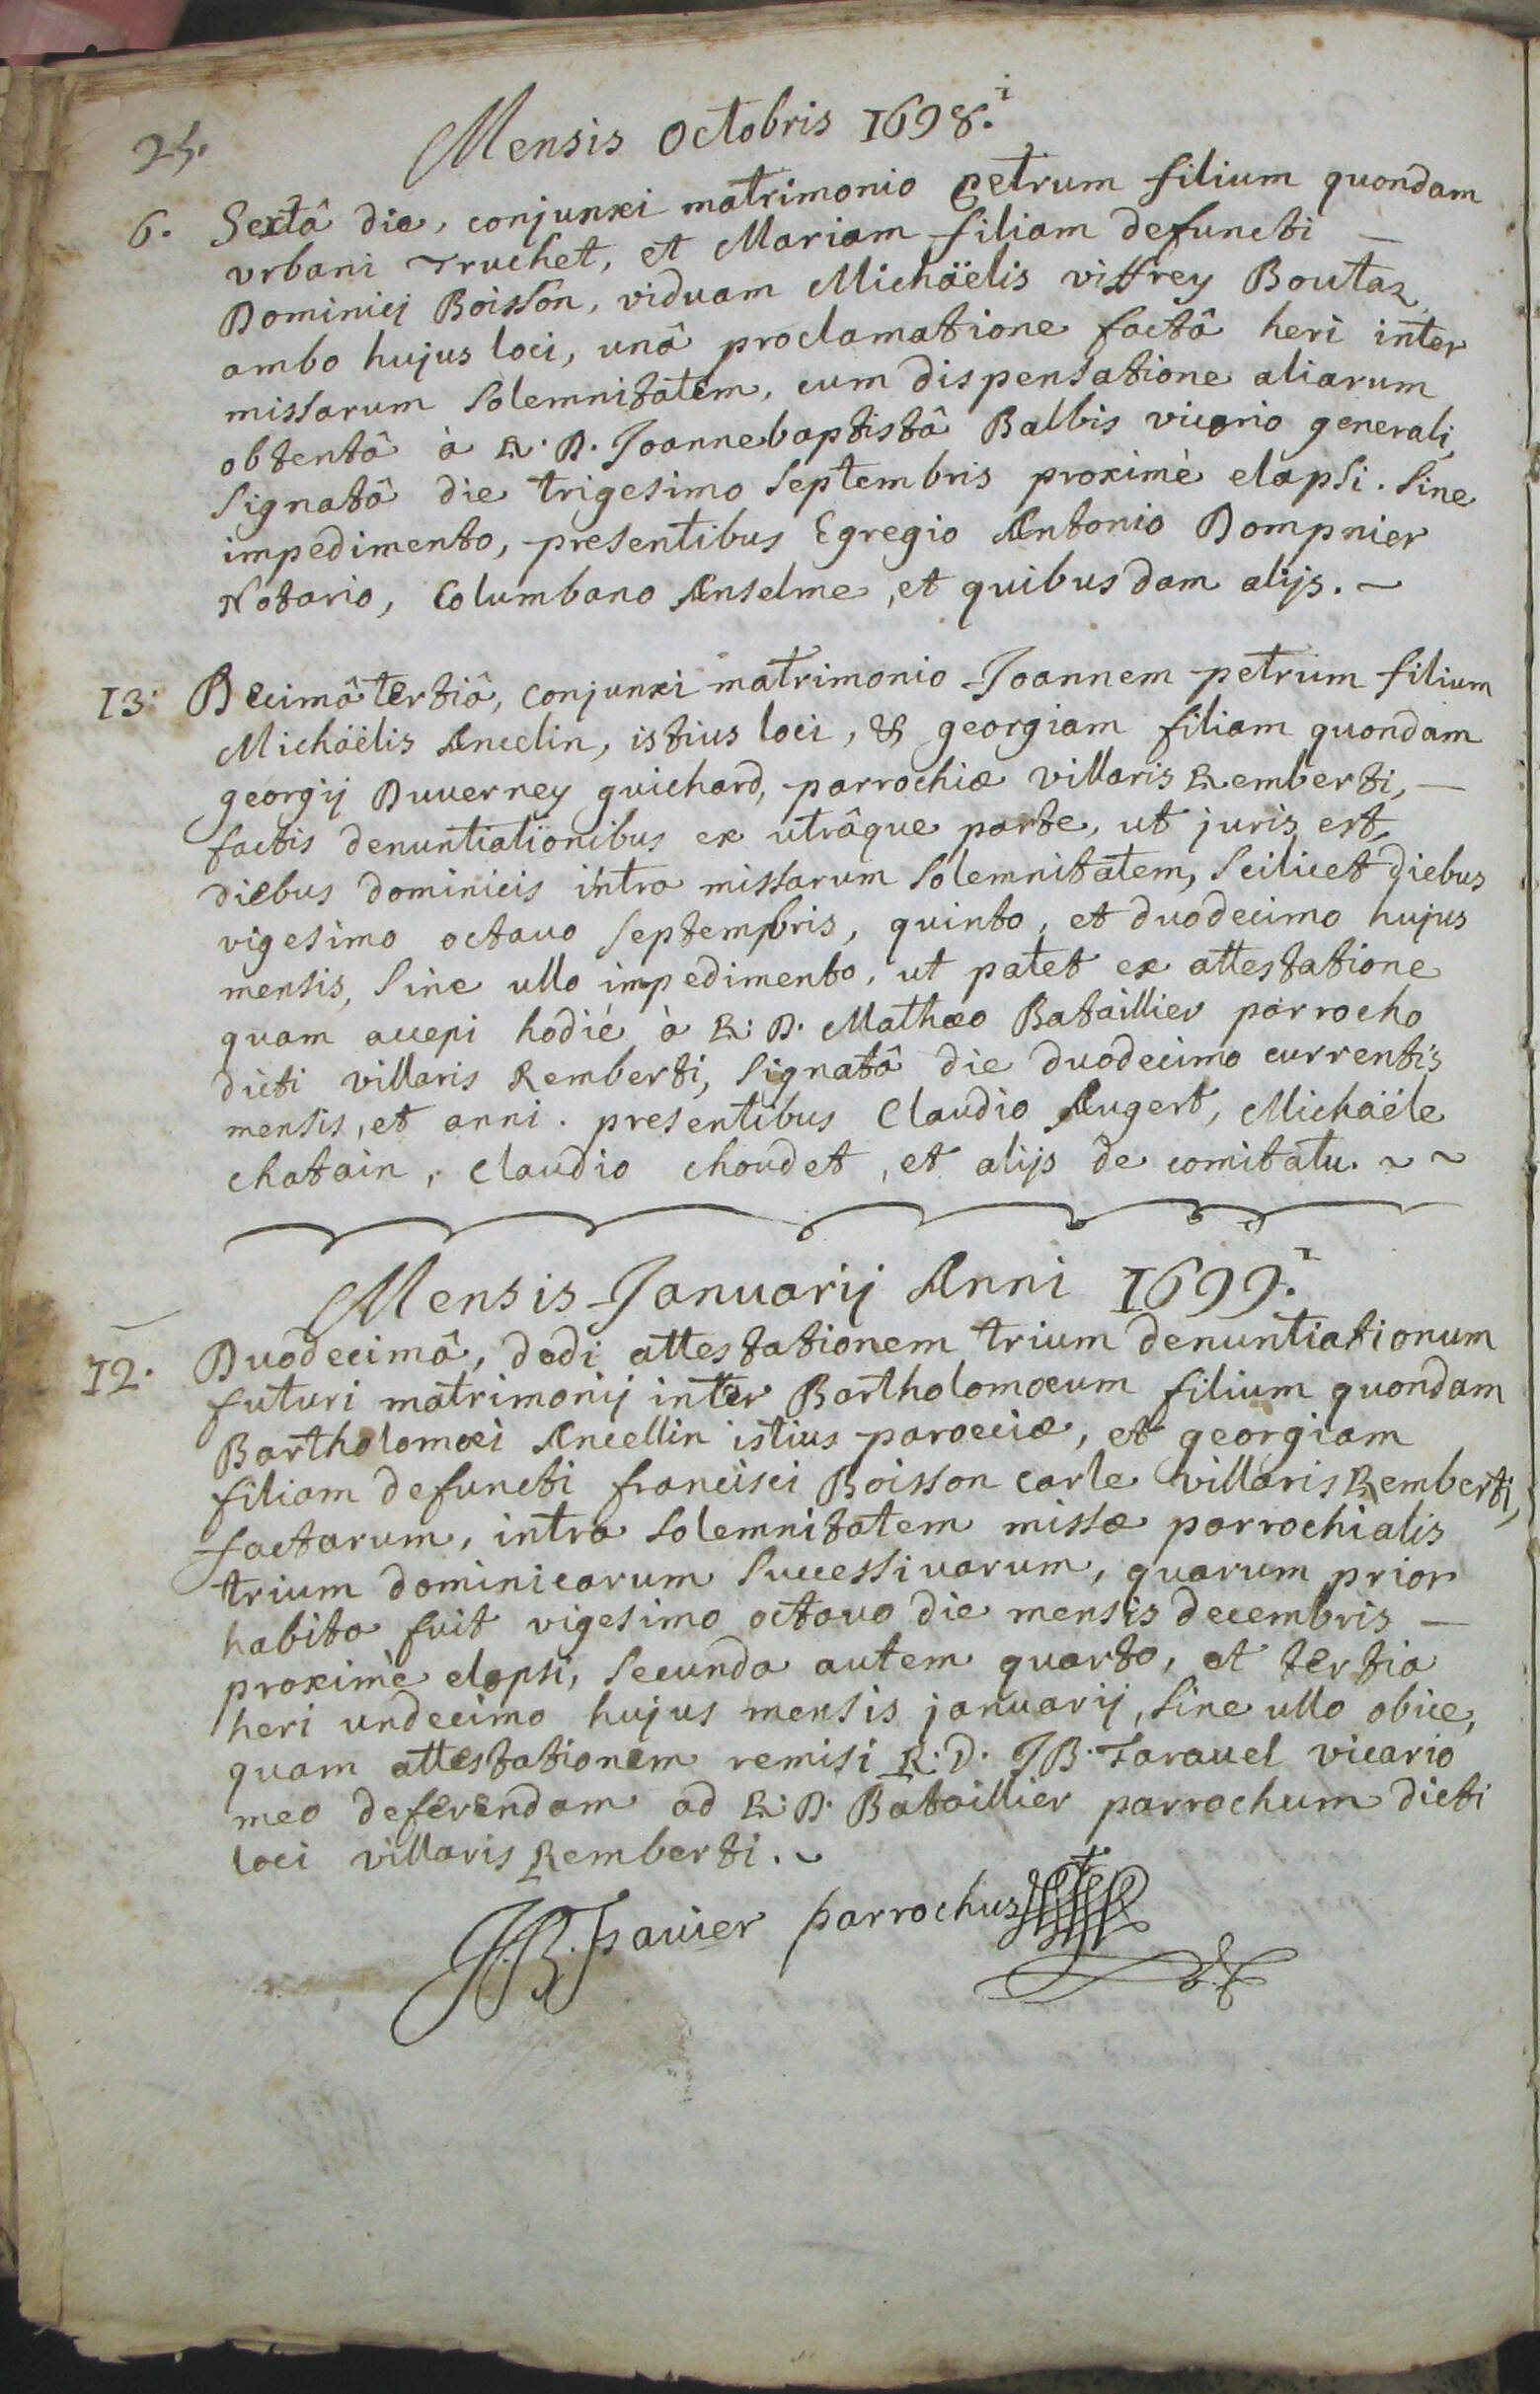 25.
Mensis Octobris 1698.i
6. Sextâ die, conjunxi matrimonio petrum filium quondam
vrbani Truchet, et Mariam filiam defuncti —
Dominicj Boisson, viduam Michäelis viffrey Boutaz,
ambo hujus loci, unâ proclamatione factâ heri inter
missarum solemnitatem, cum dispensatione aliarum
obtentâ à R. D. Joannebaptistâ Balbis vicario generali,
signatâ die trigesimo septembris proximè elapsi. sine
impedimento, presentibus Egregio Antonio Dompnier
Notario, Columbano Anselme, et quibusdam alijs. ~
13. Decimâtertiâ, conjunxi matrimonio Joannem petrum filium
Michäelis Ancelin, istius loci, & georgiam filiam quondam
georgij Duverney guichard, parrochiæ villaris Remberti, —
factis denuntiationibus ex utrâque parte, ut juris est,
diebus dominicis intra missarum solemnitatem, scilicet diebus
vigesimo octavo septembris, quinto, et duodecimo hujus
mensis, sine ullo impedimento, ut patet ex attestatione
quam accepi hodié à R: D. Mathæo Bataillier parrocho
dicti villaris Remberti, signatâ die duodecimo currentis
mensis, et anni. presentibus Claudio Augert, Michäele
chatain, claudio choudet, et alijs de comitatu. ~ ~
Mensis Januarij Anni 1699.i
12. Duodecimâ, dedi attestationem trium denuntiationum
futuri matrimonij inter Bartholomæum filium quondam
Bartholomæi Ancellin istius paroeciæ, et georgiam
filiam defuncti francisci Boisson carle villaris Remberti,
factarum, intra solemnitatem missæ parrochialis
trium dominicarum successivarum, quarum prior
habita fuit vigesimo octavo die mensis decembris —
proximè elapsi, secunda autem quarto, et tertia
heri undecimo hujus mensis januarij, sine ullo obice,
quam attestationem remisi R: D. JB. Taravel vicario
meo deferendam ad R: D. Bataillier parrochum dicti
loci villaris Remberti. ~
parrochus